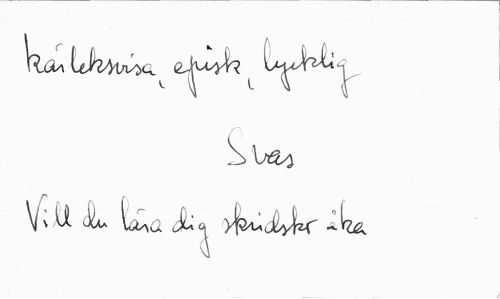 kärleksvisa, episk, lycklig
Svas
Vill du lära dig skridskor åka